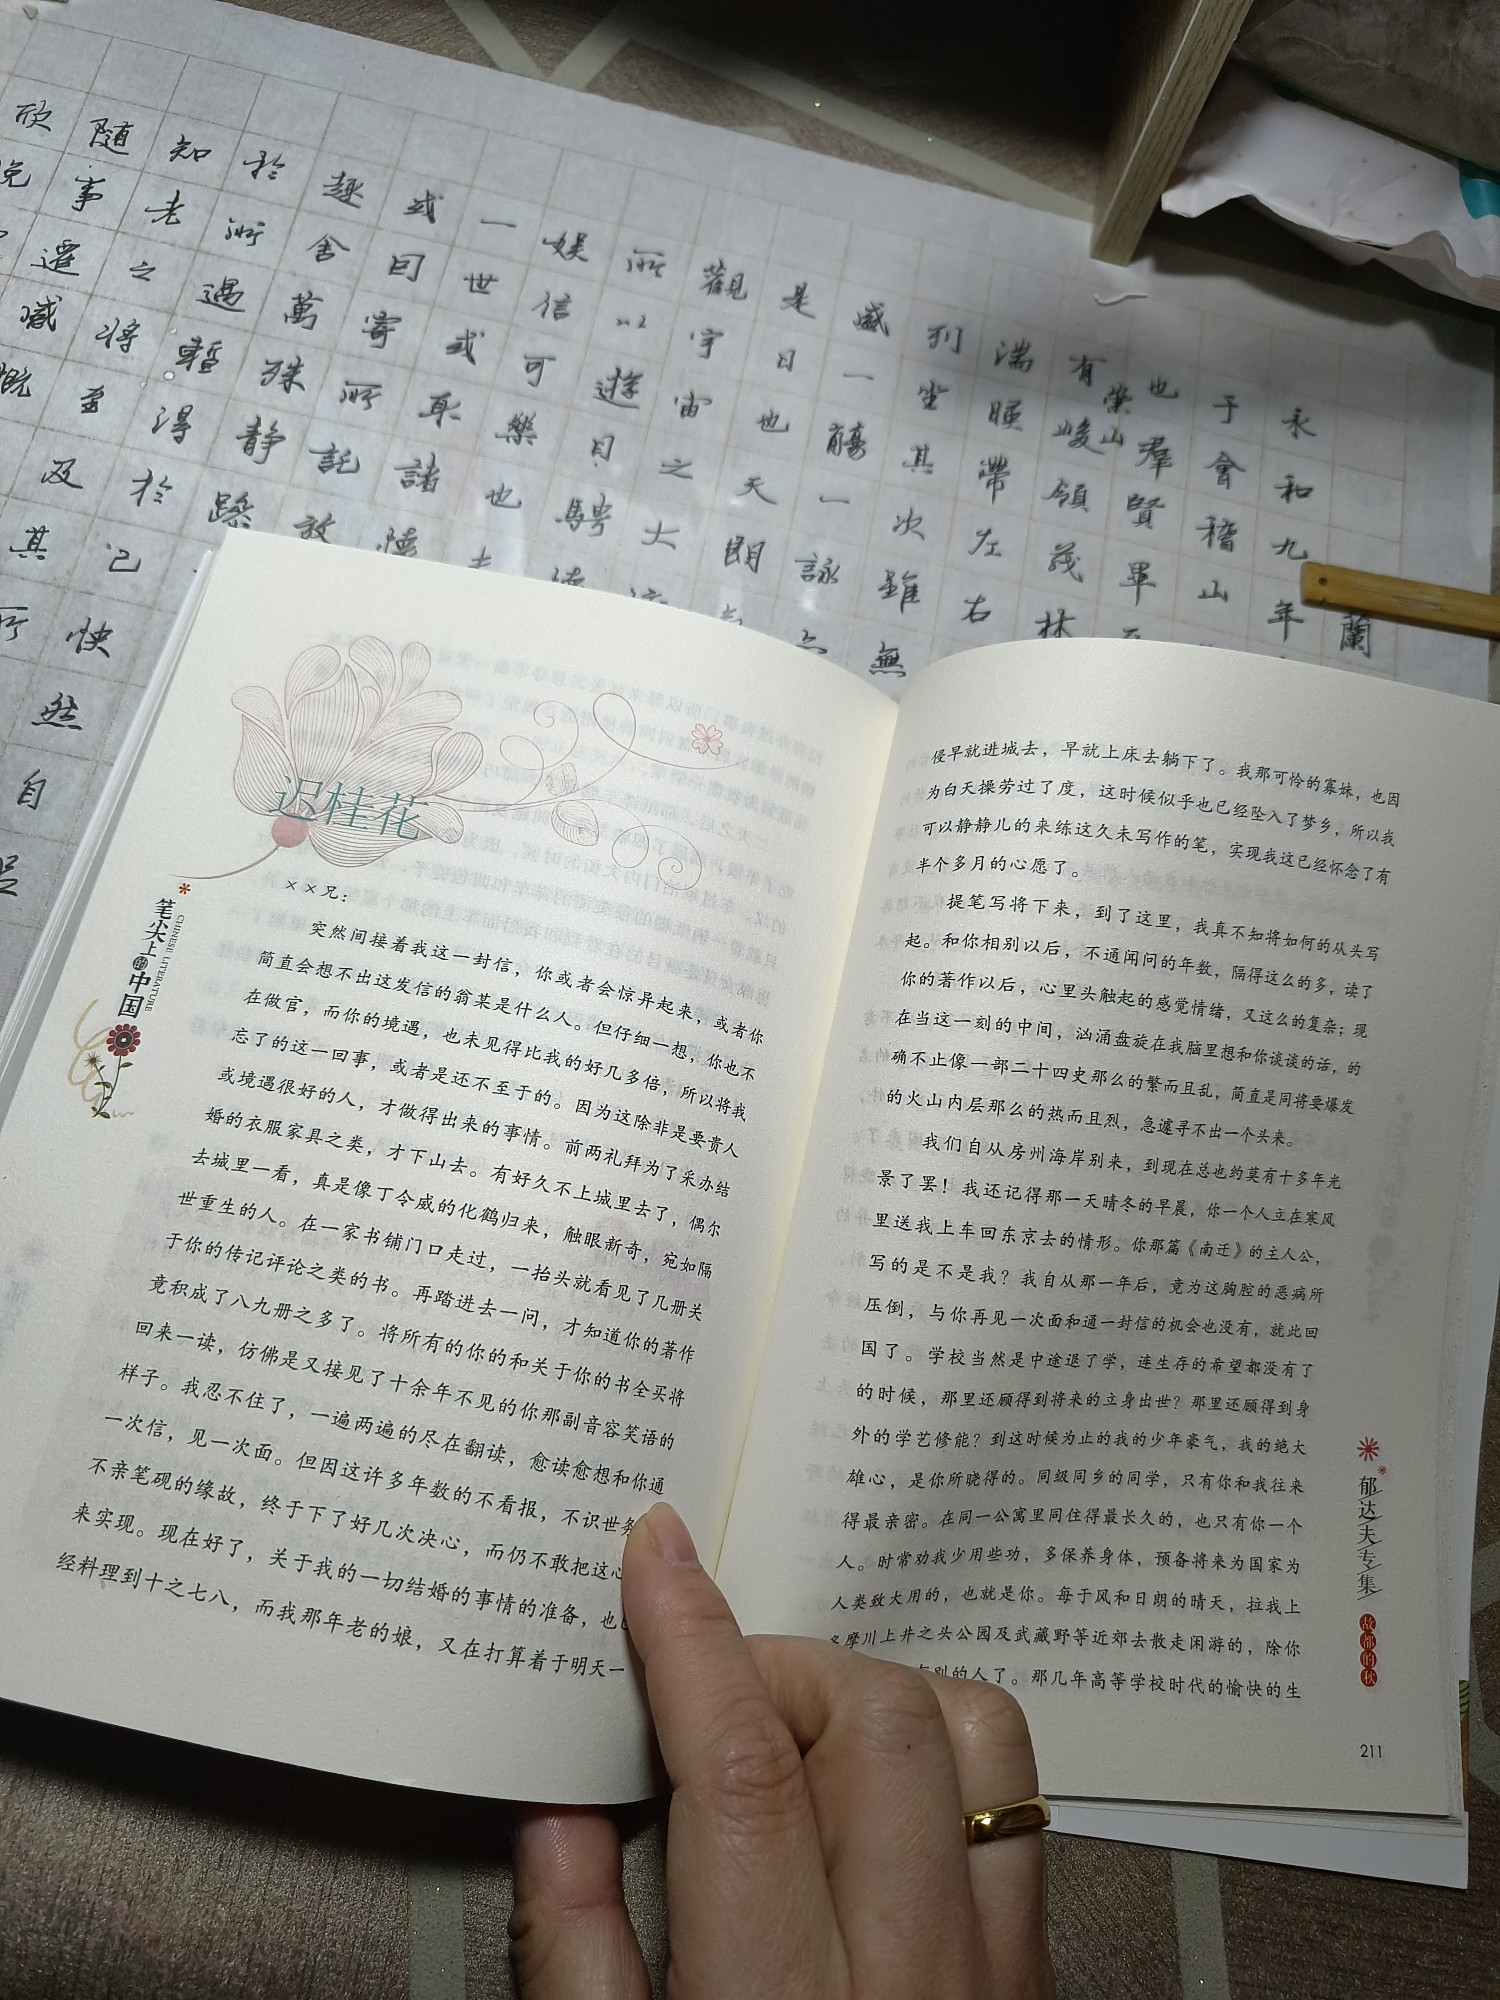 迟桂花
××兄：
突然间接着我这一封信，你或者会惊异起来，或者你
简直会想不出这发信的翁某是什么人。但仔细一想，你也不
在做官，而你的境遇，也未见得比我的好几多倍，所以将我
忘了的这一回事，或者是还不至于的。因为这除非是要贵人
或境遇很好的人，才做得出来的事情。前两礼拜为了采办结
婚的衣服家具之类，才下山去。有好久不上城里去了，偶尔
去城里一看，真是像丁令威的化鹤归来，触眼新奇，宛如隔
世重生的人。在一家书铺门口走过，一抬头就看见了几册关
于你的传记评论之类的书。再踏进去一问，才知道你的著作
竟积成了八九册之多了。将所有的你的和关于你的书全买将
回来一读，仿佛是又接见了十余年不见的你那副音容笑语的
样子。我忍不住了，一遍两遍的尽在翻读，愈读愈想和你通
一次信，见一次面。但因这许多年数的不看报，不识世务
不亲笔砚的缘故，终于下了好几次决心，而仍不敢把这心
来实现。现在好了，关于我的一切结婚的事情的准备，也
经料理到十之七八，而我那年老的娘，又在打算着于明天一
笔尖上的中国
CHINESE LITERATURE
侵早就进城去，早就上床去躺下了。我那可怜的寡妹，也因
为白天操劳过了度，这时候似乎也已经坠入了梦乡，所以我
可以静静儿的来练这久未写作的笔，实现我这已经怀念了有
半个多月的心愿了。
提笔写将下来，到了这里，我真不知将如何的从头写
起。和你相别以后，不通闻问的年数，隔得这么的多，读了
你的著作以后，心里头触起的感觉情绪，又这么的复杂；现
在当这一刻的中间，汹涌盘旋在我脑里想和你谈谈的话，的
确不止像一部二十四史那么的繁而且乱，简直是同将要爆发
的火山内层那么的热而且烈，急遽寻不出一个头来。
我们自从房州海岸别来，到现在总也约莫有十多年光
景了罢！我还记得那一天晴冬的早晨，你一个人立在寒风
里送我上车回东京去的情形。你那篇《南迁》的主人公，
写的是不是我？我自从那一年后，竟为这胸腔的恶病所
压倒，与你再见一次面和通一封信的机会也没有，就此回
国了。学校当然是中途退了学，连生存的希望都没有了
的时候，那里还顾得到将来的立身出世？那里还顾得到身
外的学艺修能？到这时候为止的我的少年豪气，我的绝大
雄心，是你所晓得的。同级同乡的同学，只有你和我往来
得最亲密。在同一公寓里同住得最长久的，也只有你一个
人。时常劝我少用些功，多保养身体，预备将来为国家为
人类致大用的，也就是你。每于风和日朗的晴天，拉我上
多摩川上井之头公园及武藏野等近郊去散走闲游的，除你
别的人了。那几年高等学校时代的愉快的生
郁达夫专集
故都的秋
211
蘭
永和九年
于會稽山
也羣賢畢
有崇山峻領茂林
湍暎帶左右
列坐其次雖無
咸一觴一詠
是日也天朗
觀宇宙之大
所以遊目騁
娱信可樂也
一世或取諸
或回寄所託放
趣舍萬殊静躁
於所遇暫得於己快然自
知老之將至
隨事遷
欣
其
及